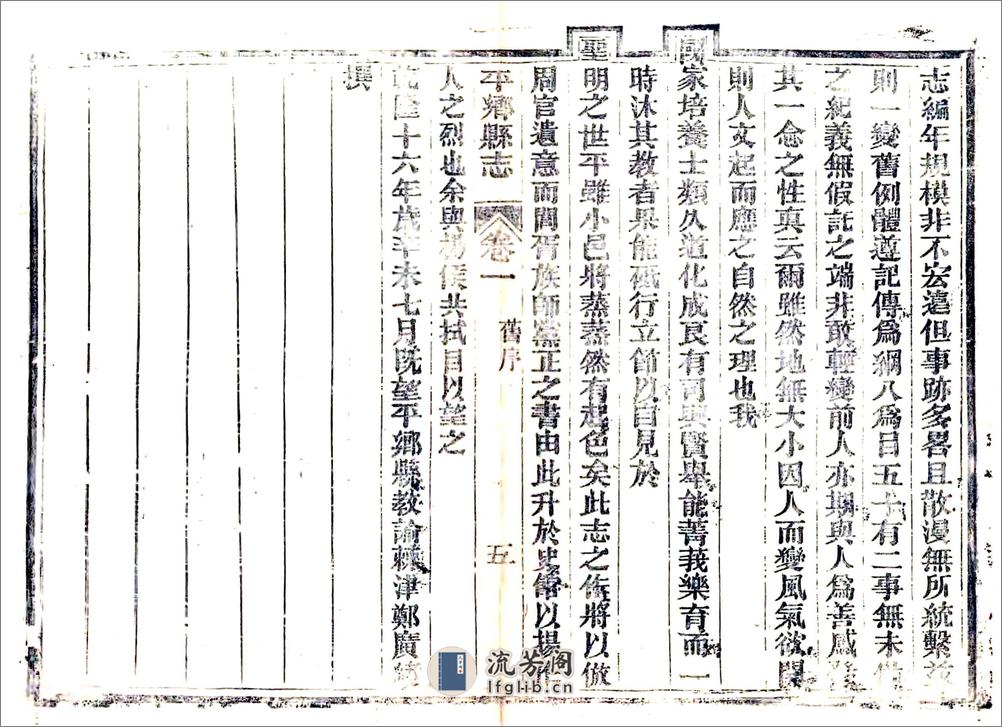 志編年規模非不宏遠但事跡多畧且散漫無所統繫茲
則一變舊例體遵記傳為綱八為目五十有二事無未備
之紀義無假託之端非敢輕變前人亦期與人為善感發
其一念之性真云爾雖然地無大小因人而變風氣欲開
則人文起而應之自然之理也我
國家培養士類久道化成良有司興賢舉能菁莪樂育而一
時沐其教者果能砥行立節以自見於
聖明之世平雖小邑將蒸蒸然有起色矣此志之作將以倣
周官遺意而閭胥族師黨正之書由此升於史館以揚
平鄉縣志 卷一 舊序 五
人之烈也余與楊侯共拭目以望之
乾隆十六年歲辛未七月既望平鄉縣教諭棘津鄭廣
撰
流芳阁
lfglib.cn